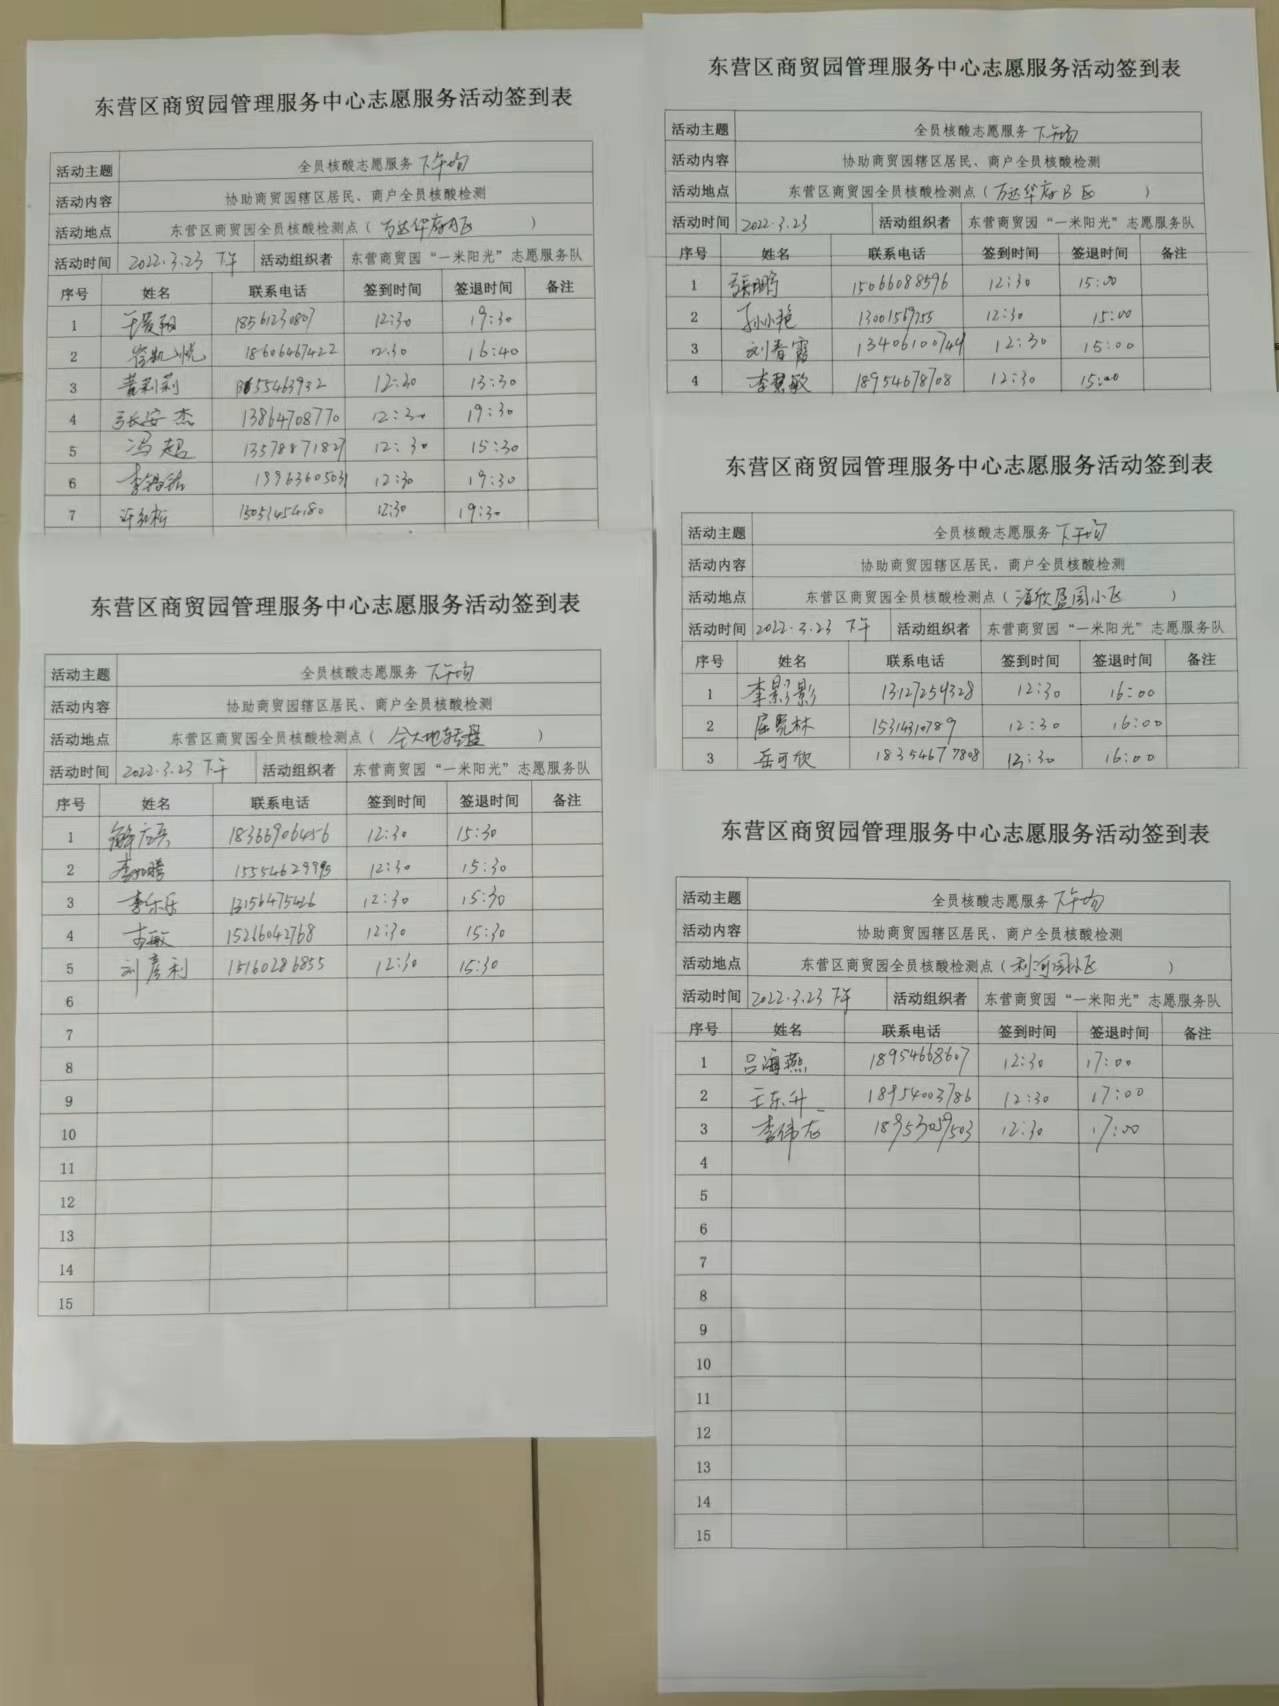 东营区商贸园管理服务中心志愿服务活动签到表
活动主题 全员核酸志愿服务 下午场
活动内容 协助商贸园辖区居民、商户全员核酸检测
活动地点 东营区商贸园全员核酸检测点（万达华府A区）
活动时间 2022.3.23 下午 活动组织者 东营商贸园“一米阳光”志愿服务队
序号 姓名 联系电话 签到时间 签退时间 备注
1 12:30 19:30
2 18606467422 12:30 16:40
3 黄莉莉 12:30 13:30
4 张安杰 13864708770 12:30 19:30
5 冯超 13578871827 12:30 15:30
6 19963605031 12:30 19:30
7 15051454180 12:30 19:30
东营区商贸园管理服务中心志愿服务活动签到表
活动主题 全员核酸志愿服务 下午场
活动内容 协助商贸园辖区居民、商户全员核酸检测
活动地点 东营区商贸园全员核酸检测点（ ）
活动时间 2022.3.23 下午 活动组织者 东营商贸园“一米阳光”志愿服务队
序号 姓名 联系电话 签到时间 签退时间 备注
1 18366906456 12:30 15:30
2 12:30 15:30
3 李乐乐 12:30 15:30
4 15266042768 12:30 15:30
5 刘彦利 15160286855 12:30 15:30
6
7
8
9
10
11
12
13
14
15
东营区商贸园管理服务中心志愿服务活动签到表
活动主题 全员核酸志愿服务 下午场
活动内容 协助商贸园辖区居民、商户全员核酸检测
活动地点 东营区商贸园全员核酸检测点（万达华府B区）
活动时间 2022.3.23 活动组织者 东营商贸园“一米阳光”志愿服务队
序号 姓名 联系电话 签到时间 签退时间 备注
1 张鹏 15066088596 12:30 15:00
2 孙小艳 13001569755 12:30 15:00
3 刘春霞 13406100744 12:30 15:00
4 李慧敏 18954678708 12:30 15:00
东营区商贸园管理服务中心志愿服务活动签到表
活动主题 全员核酸志愿服务 下午场
活动内容 协助商贸园辖区居民、商户全员核酸检测
活动地点 东营区商贸园全员核酸检测点（海欣盈园小区）
活动时间 2022.3.23 下午 活动组织者 东营商贸园“一米阳光”志愿服务队
序号 姓名 联系电话 签到时间 签退时间 备注
1 李影影 13127254328 12:30 16:00
2 15314310789 12:30 16:00
3 岳可欣 18354677808 12:30 16:00
东营区商贸园管理服务中心志愿服务活动签到表
活动主题 全员核酸志愿服务 下午场
活动内容 协助商贸园辖区居民、商户全员核酸检测
活动地点 东营区商贸园全员核酸检测点（利河园小区）
活动时间 2022.3.23 下午 活动组织者 东营商贸园“一米阳光”志愿服务队
序号 姓名 联系电话 签到时间 签退时间 备注
1 吕海燕 18954668607 12:30 17:00
2 王东升 18954003786 12:30 17:00
3 李伟志 18953059503 12:30 17:00
4
5
6
7
8
9
10
11
12
13
14
15